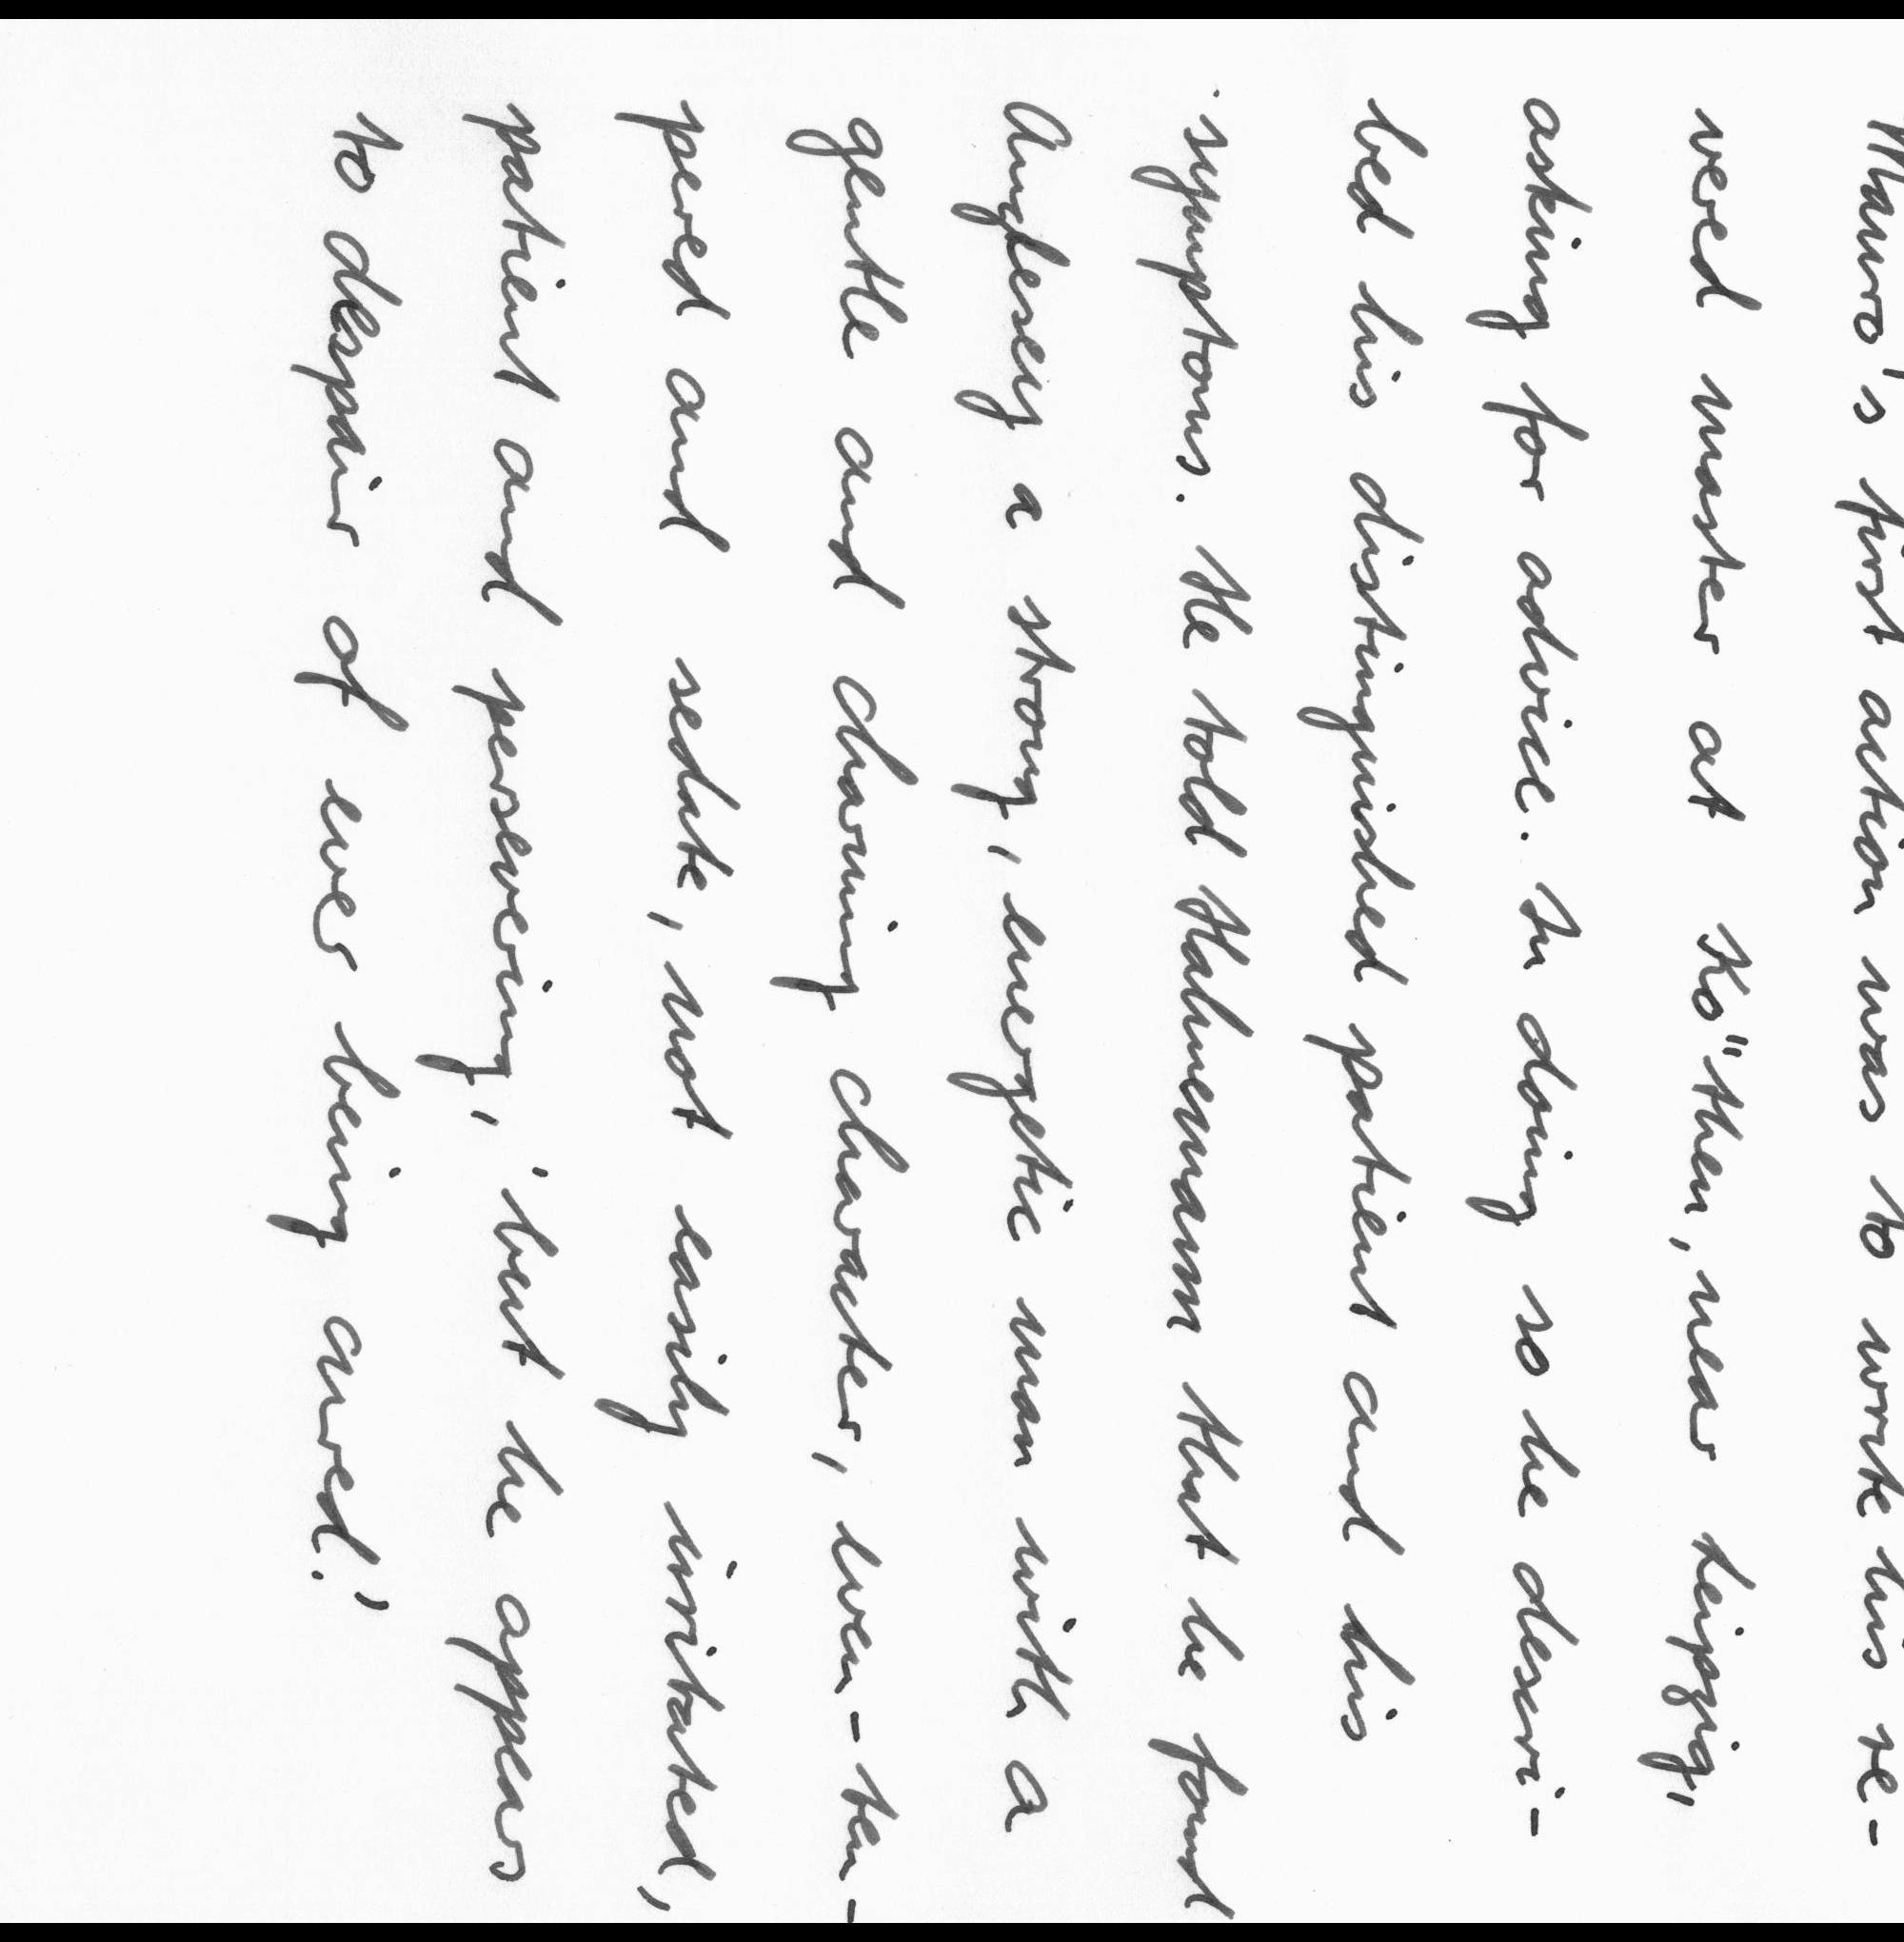 Mauro's first action was to write his re-
vered master at Kö"then, near Leipzig,
asking for advice. In doing so he descri-
bed his distinguished patient and his
symptoms. He told Hahnemann that he found
Anglesey a strong, energetic man with a
gentle and charming character, even-tem-
pered and sedate, not easily irritated,
patient and persevering, 'but he appears
to despair of ever being cured.'